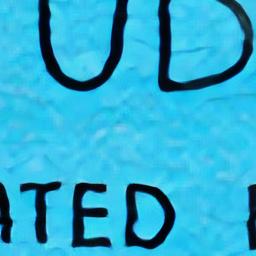 UD
ATED